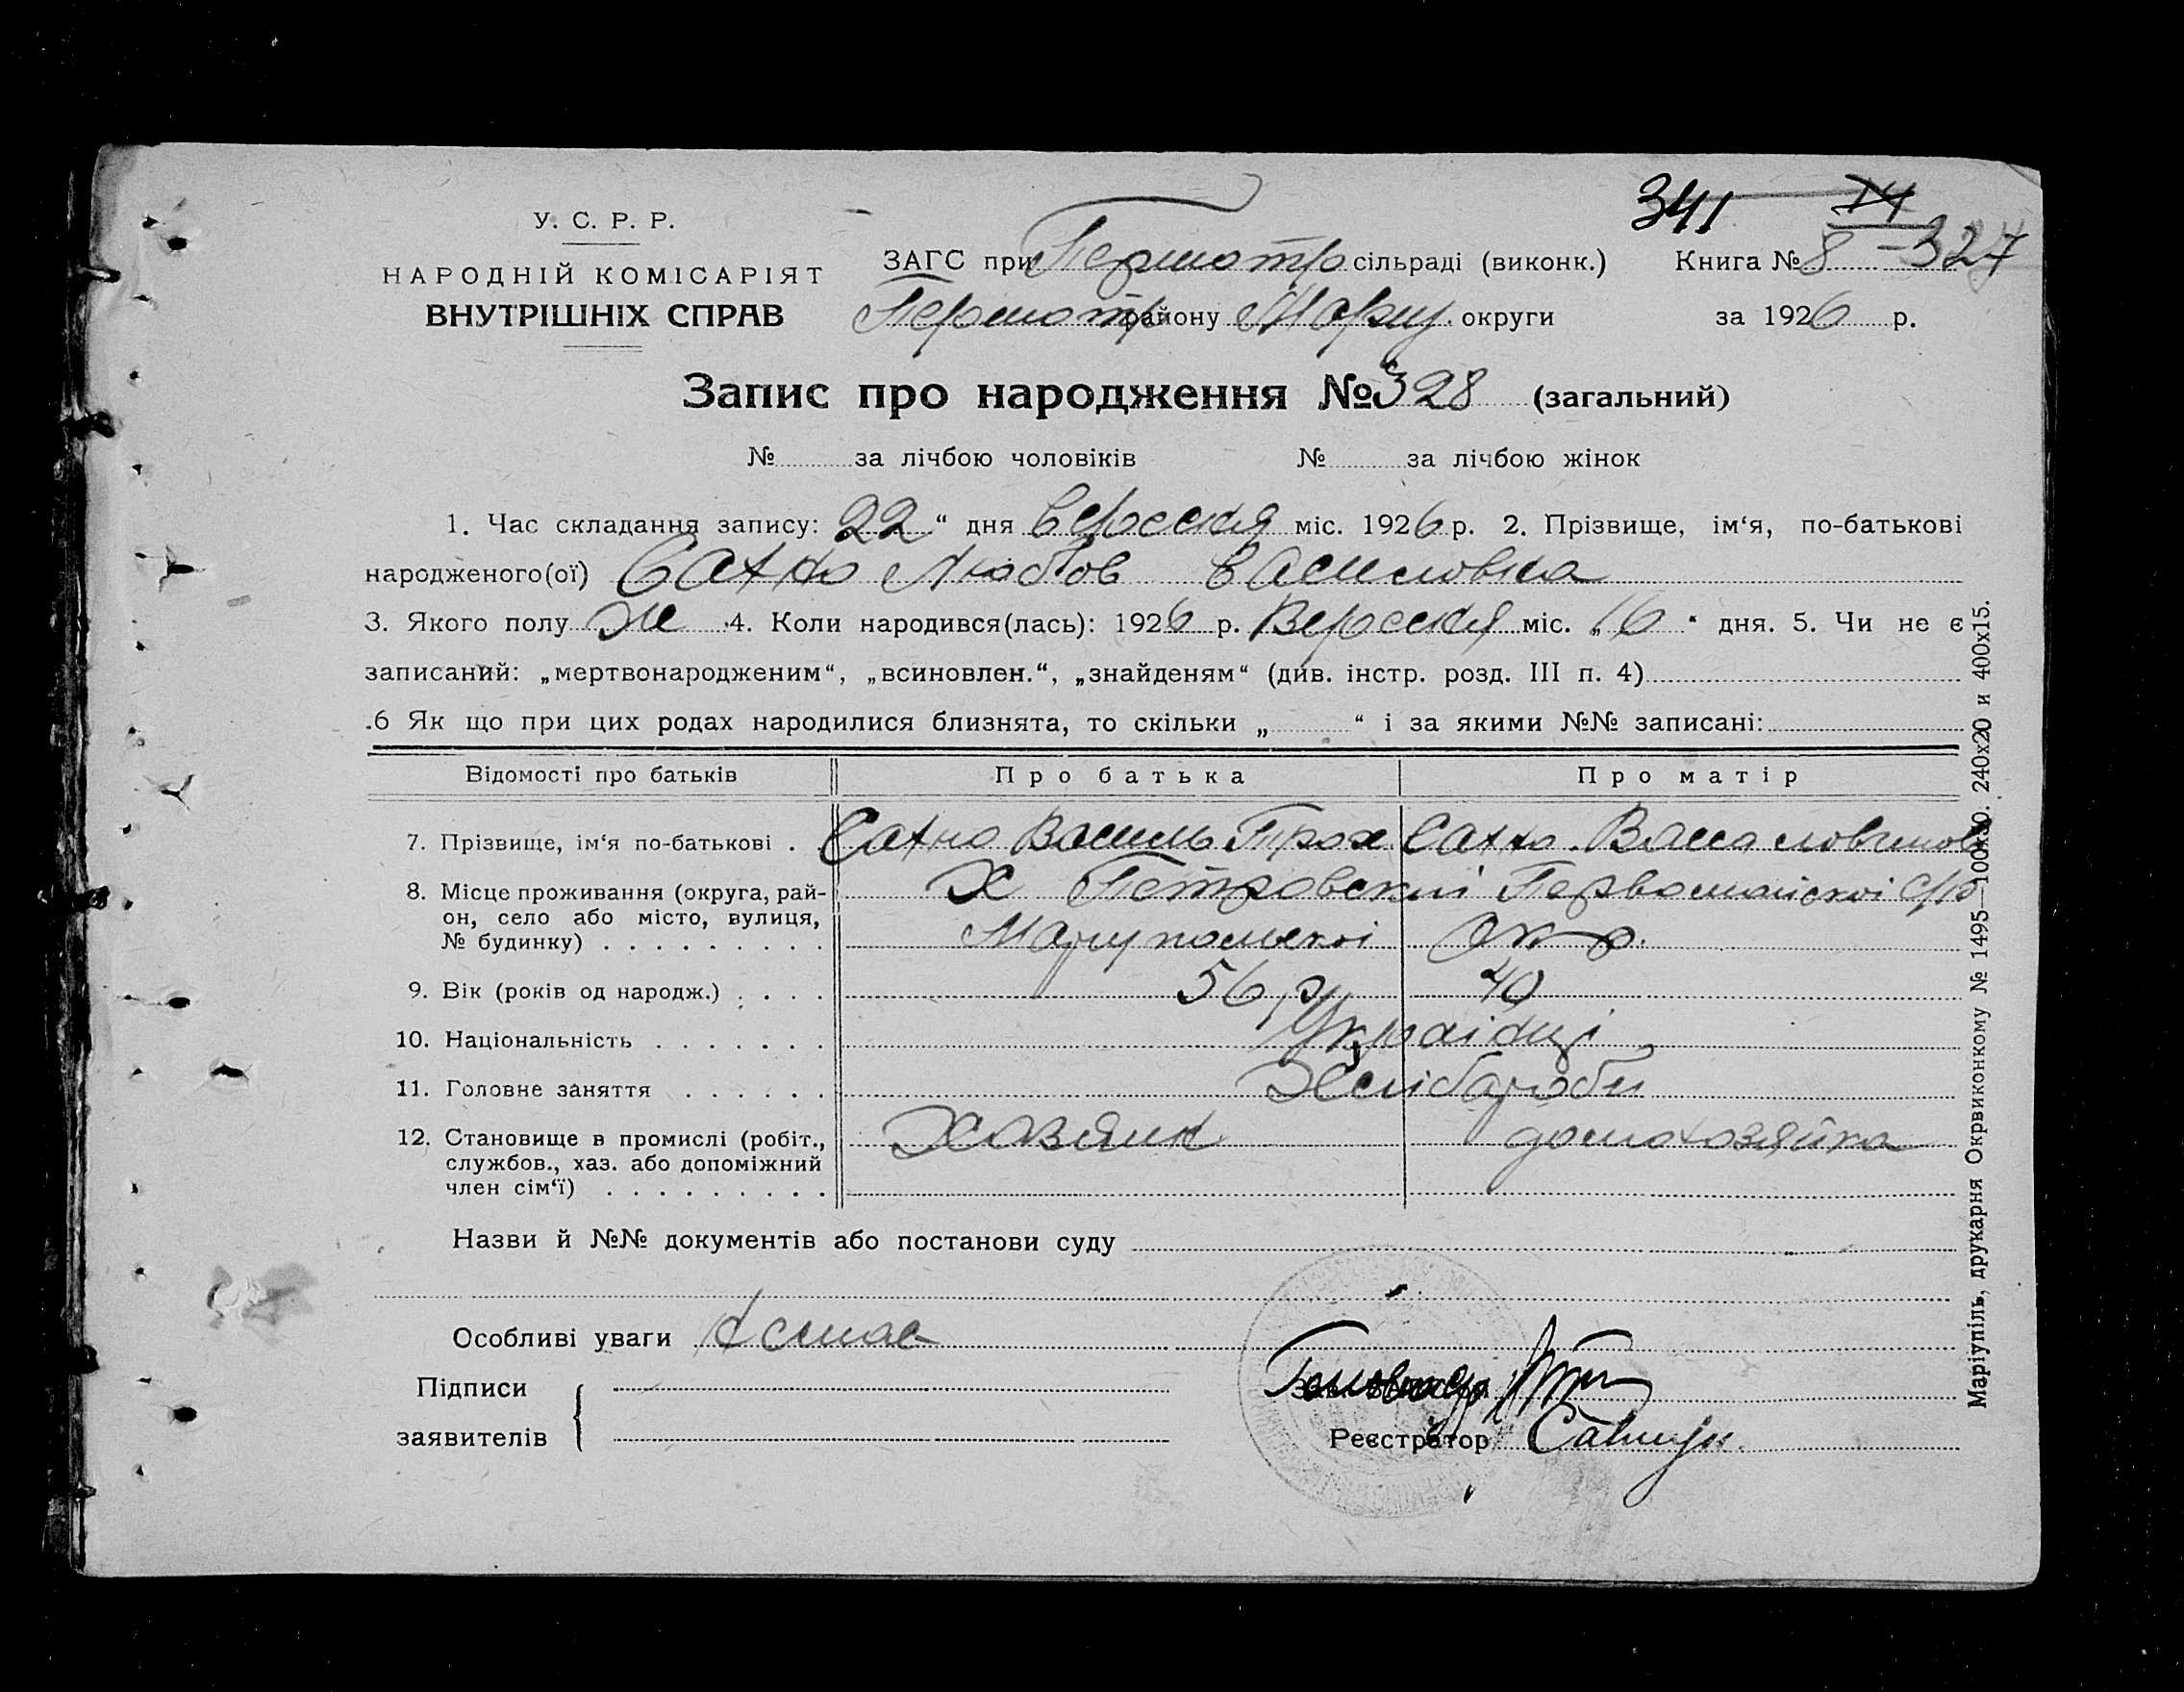 341 14
У. С. Р. Р.
НАРОДНІЙ КОМІСАРІЯТ
ВНУТРІШНІХ СПРАВ
ЗАГС при сільраді (виконк.) Книга № 8 - 327
району Маріу. округи за 1926 р.
Запис про народження № 328 (загальний)
№ за лічбою чоловіків № за лічбою жінок
1. Час складання запису: 22 “ дня Вересня міс. 1926 р. 2. Прізвище, ім‘я, по-батькові
народженого(ої) Сахно Любов Василовна
3. Якого полу Ж 4. Коли народився(лась): 1926 р. Вересня міс. „16“ дня. 5. Чи не є
записаний: „мертвонародженим“, „всиновлен.“, „знайденям“ (див. інстр. розд. III п. 4)
.6 Як що при цих родах народилися близнята, то скільки „ “ і за якими №№ записані:
Відомості про батьків Про батька Про матір
7. Прізвище, ім‘я по-батькові . . Сахно Василь Трох. Сахно Васса
8. Місце проживання (округа, рай-
он, село або місто, вулиця,
№ будинку) . . . . . . . . .
Х Петровский Первомайскоі с/р
Маріупольскоі окр.
9. Вік (років од народж.) . . . . 56 р. 40
10. Національність . . . . . . . Українці
11. Головне заняття . . . . . . Хлібароби
12. Становище в промислі (робіт.,
службов., хаз. або допоміжний
член сім‘ї) . . . . . . . . .
Хазяин домохозяйка
Назви й №№ документів або постанови суду
Особливі уваги
Підписи
заявителів
Реєстратор
Маріупіль, друкарня Окрвиконкому № 1495—100х30. 240х20 и 400х15.